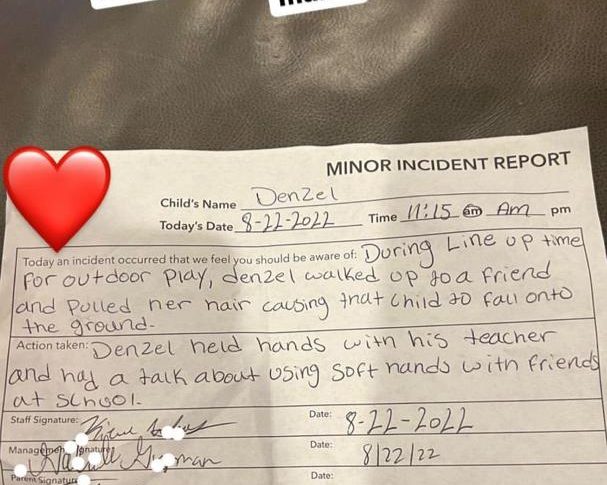 MINOR INCIDENT REPORT
Child's Name Denzel
Today's Date 8-22-2022 Time 11:15 am Am pm
Today an incident occurred that we feel you should be aware of: During Line up time
For outdoor play, denzel walked up to a friend
and pulled her hair causing that child to fall onto
the ground.
Action taken: Denzel held hands with his teacher
and had a talk about using soft hands with friends
at school.
Staff Signature: Date: 8-22-2022
Management Signature: Date: 8/22/22
Parent Signature Date: